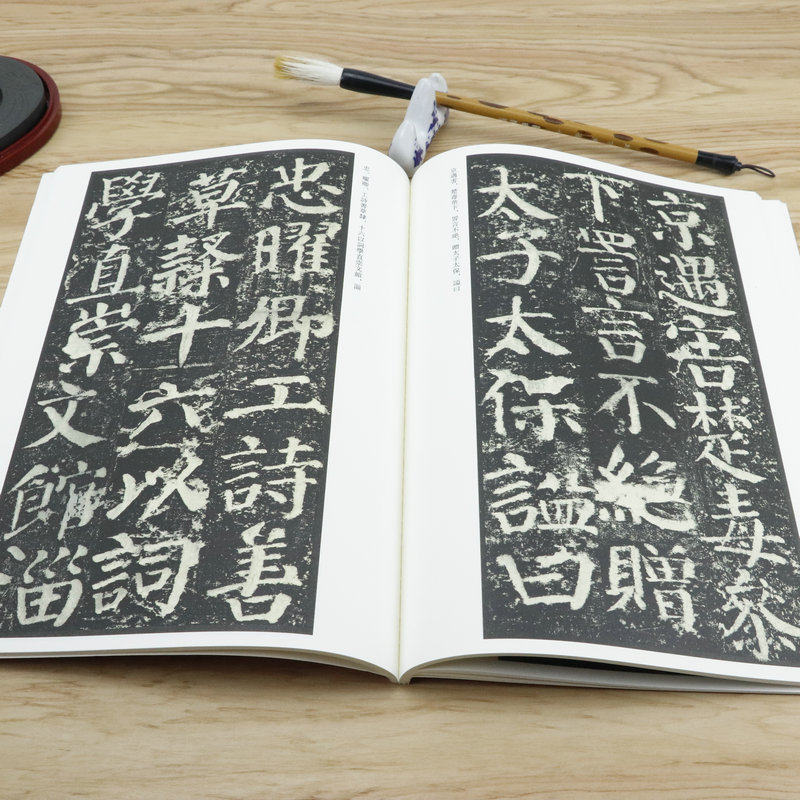 京遇害楚毒參
下詈言不絕贈
太子太保謚曰
京遇害、楚毒參下、詈言不絕、贈太子太保、謚曰
忠曜卿工詩善
草隸十六以詞
學直崇文館淄
忠。曜卿、工詩善草隸、十六以詞學直崇文館、淄